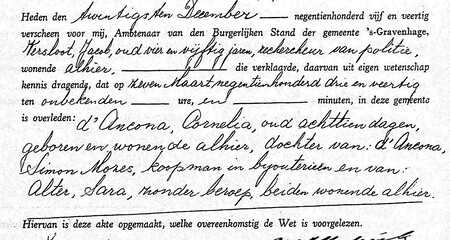 Heden den twintigsten December negentienhonderd vijf en veertig
verscheen voor mij, Ambtenaar van den Burgerlijken Stand der gemeente 's-Gravenhage,
Kersloot, Jacob, oud vier en vijftig jaren, rechercheur van politie,
wonende alhier, die verklaarde, daarvan uit eigen wetenschap
kennis dragende, dat op zeven Maart negentienhonderd drie en veertig
ten onbekenden ure, en minuten, in deze gemeente
is overleden: d'Ancona, Cornelia, oud achttien dagen,
geboren en wonende alhier, dochter van: d'Ancona,
Simon Mozes, koopman in byouterieën en van:
Alter, Sara, zonder beroep, beiden wonende alhier.
Hiervan is deze akte opgemaakt, welke overeenkomstig de Wet is voorgelezen.